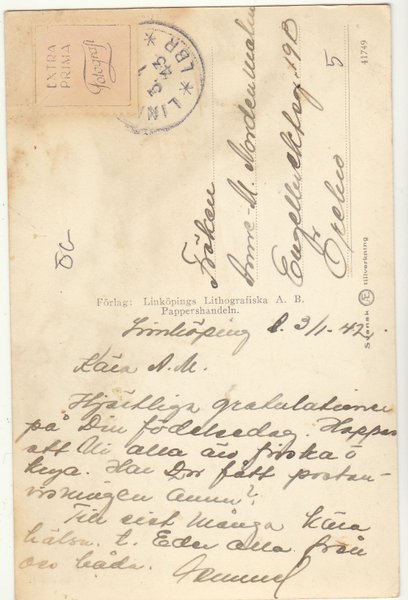 EXTRA
PRIMA
Fotografi
LIN
LBR
41749
Fröken
Anne-M. Nordenmalm
Engelbrektsg. 19B
Örebro 5
Svensk tillverkning
Förlag: Linköpings Lithografiska A. B.
Pappershandeln.
Linköping d. 3/1-42.
Kära A. M.
Hjärtliga gratulationer
på Din födelsedag. Hoppas
att Ni alla äro friska o
krya. Har Du fått postan-
visningen ännu?
Till sist många kära
hälsn. t. Eder alla från
oss båda.